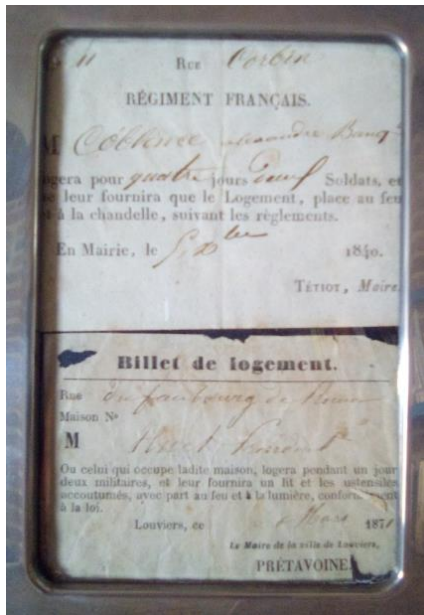 11 Rue Corbin
RÉGIMENT FRANÇAIS.
M Coblence alexandre Banq.
logera pour quatre jours deux Soldats, et
ne leur fournira que le Logement, place au feu
et à la chandelle, suivant les règlements.
En Mairie, le 5 Xbre 1840.
TÉTIOT, Maire.
Billet de logement.
Rue du faubourg de Rouen
Maison N°
M
Ou celui qui occupe ladite maison, logera pendant un jour
deux militaires, et leur fournira un lit et les ustensiles
accoutumés, avec part au feu et à la lumière, conformément
à la loi.
Louviers, ce Mars 1871
Le Maire de la ville de Louviers,
PRÉTAVOINE.